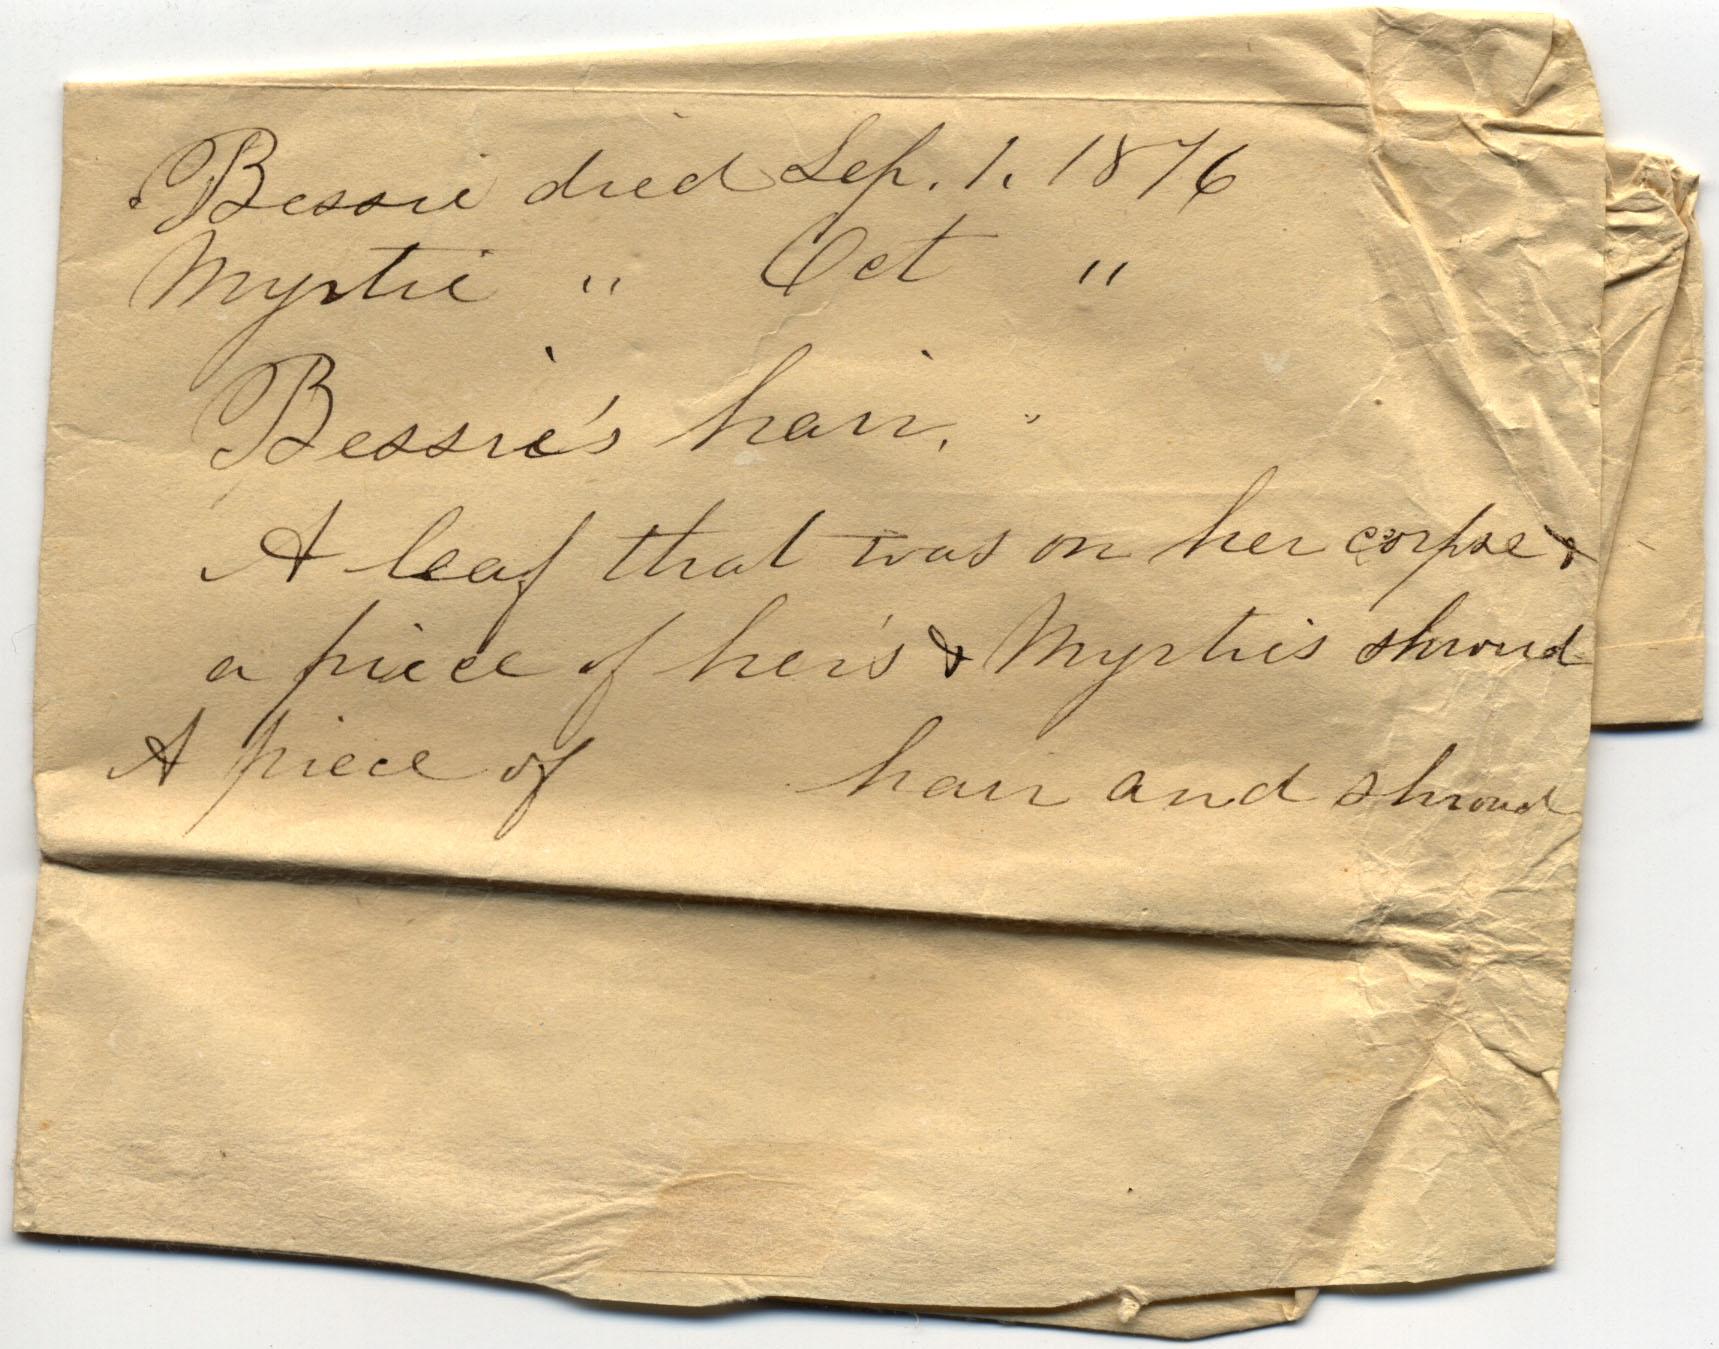 Bessie died Sep. 1. 1876
Myrtie " Oct "
Bessie's hair.
A leaf that was on her corpse &
a piece of her's & Myrtis shroud
A piece of hair and shroud